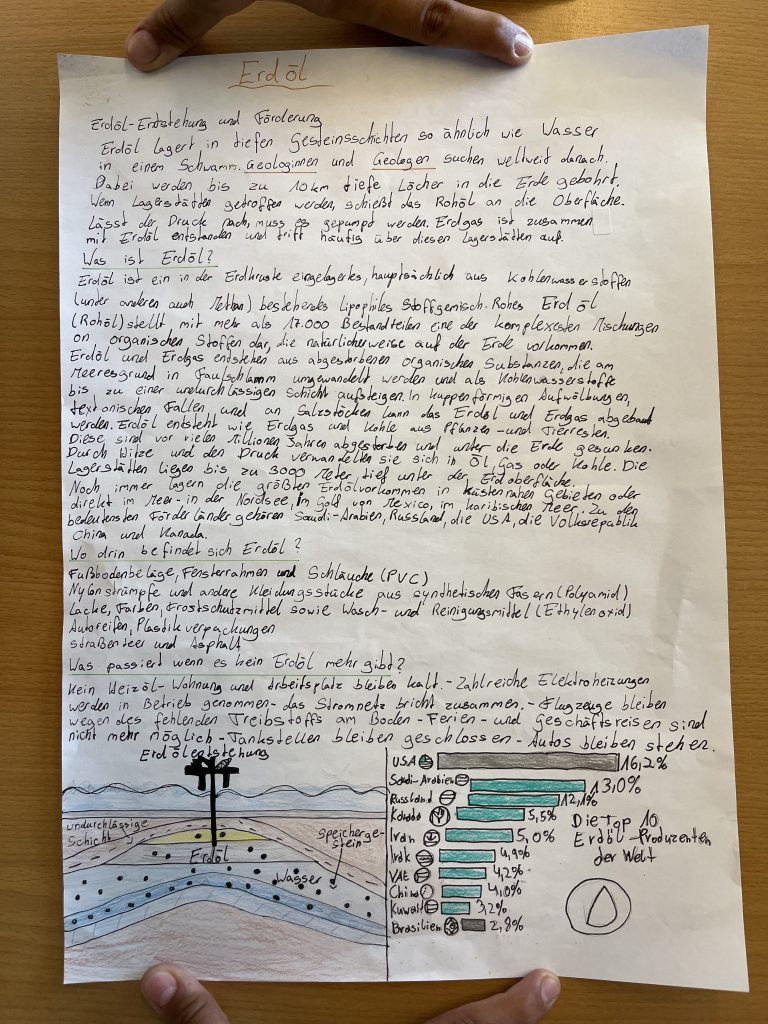 Erdöl
Erdöl-Entstehung und Förderung
Erdöl lagert in tiefen Gesteinsschichten so ähnlich wie Wasser
in einem Schwamm. Geologinnen und Geologen suchen weltweit danach.
Dabei werden bis zu 10km tiefe Löcher in die Erde gebohrt.
Wenn Lagerstätten getroffen werden, schießt das Rohöl an die Oberfläche.
Lässt der Druck nach, muss es gepumpt werden. Erdgas ist zusammen
mit Erdöl entstanden und trift häufig über diesen Lagerstätten auf.
Was ist Erdöl?
Erdöl ist ein in der Erdkruste eingelagertes, hauptsächlich aus Kohlenwasserstoffen
(unter anderen auch Methan) bestehendes lipophiles Stoffgemisch. Rohes Erdöl
(Rohöl) stellt, mit mehr als 17.000 Bestandteilen eine der komplexesten Mischungen
on organischen Stoffen dar, die natürlicherweise auf der Erde vorkommen.
Erdöl und Erdgas entstehen aus abgestorbenen organischen Substanzen, die am
Meeresgrund in Faulschlamm umgewandelt werden und als Kohlenwasserstoffe
bis zu einer undurchlässigen Schicht aufsteigen. In kuppenförmigen Aufwölbungen,
textonischen Fallen, und an Salzstöcken kann das Erdöl und Erdgas abgebaut
werden. Erdöl entsteht wie Erdgas und Kohle aus Pflanzen- und Tierresten.
Diese sind vor vielen Millionen Jahren abgestorben und unter die Erde gesunken.
Durch Hitze und den Druck verwandelten sie sich in Öl, Gas oder Kohle. Die
Lagerstätten liegen bis zu 3000 Meter tief unter der Erdoberfläche.
Noch immer lagern die größten Erdölvorkommen in küstennahen Gebieten oder
direkt im Meer- in der Nordsee, im Golf von Mexico, im karibischen Meer. Zu den
bedeutensten Förderländer gehören Saudi-Arabien, Russland, die USA, die Volksrepublik
China und Kanada.
Wo drin befindet sich Erdöl?
Fußbodenbeläge, Fensterrahmen und Schläuche (PVC)
Nylonstrümpfe und andere Kleidungsstücke aus synthetischen Fasern (Polyamid)
Lacke, Farben, Frostschutzmittel sowie Wasch- und Reinigungsmittel (Ethylenoxid)
Autoreifen, Plastikverpackungen
Straßenteer und Asphalt
Was passiert wenn es kein Erdöl mehr gibt?
Kein Heizöl- Wohnung und Arbeitsplatz bleiben kalt.- Zahlreiche Elektroheizungen
werden in Betrieb genommen- das Stromnetz bricht zusammen.- Flugzeuge bleiben
wegen des fehlenden Treibstoffs am Boden- Ferien- und Geschäftsreisen sind
nicht mehr möglich- Tankstellen bleiben geschlossen- Autos bleiben stehen.
Erdölentstehung
undurchlässige
Schicht
Erdöl
Speicherge-
stein
Wasser
USA 16,2%
Saudi-Arabien 13,0%
Russland 12,1%
Kanada 5,5%
Iran 5,0%
Irak 4,9%
VAE 4,2%
China 4,0%
Kuwait 3,2%
Brasilien 2,8%
Die Top 10
Erdöl-Produzenten
der Welt